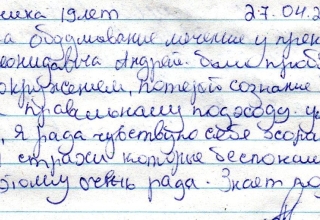 ника 19 лет 27.04.2
на обследование лечение у
еонидовича Андрей. были проб
окружением, потерей сознание
правильному подходу.
, я рада чувствую себя
страхи которые беспокои
этому очень рада. Знает